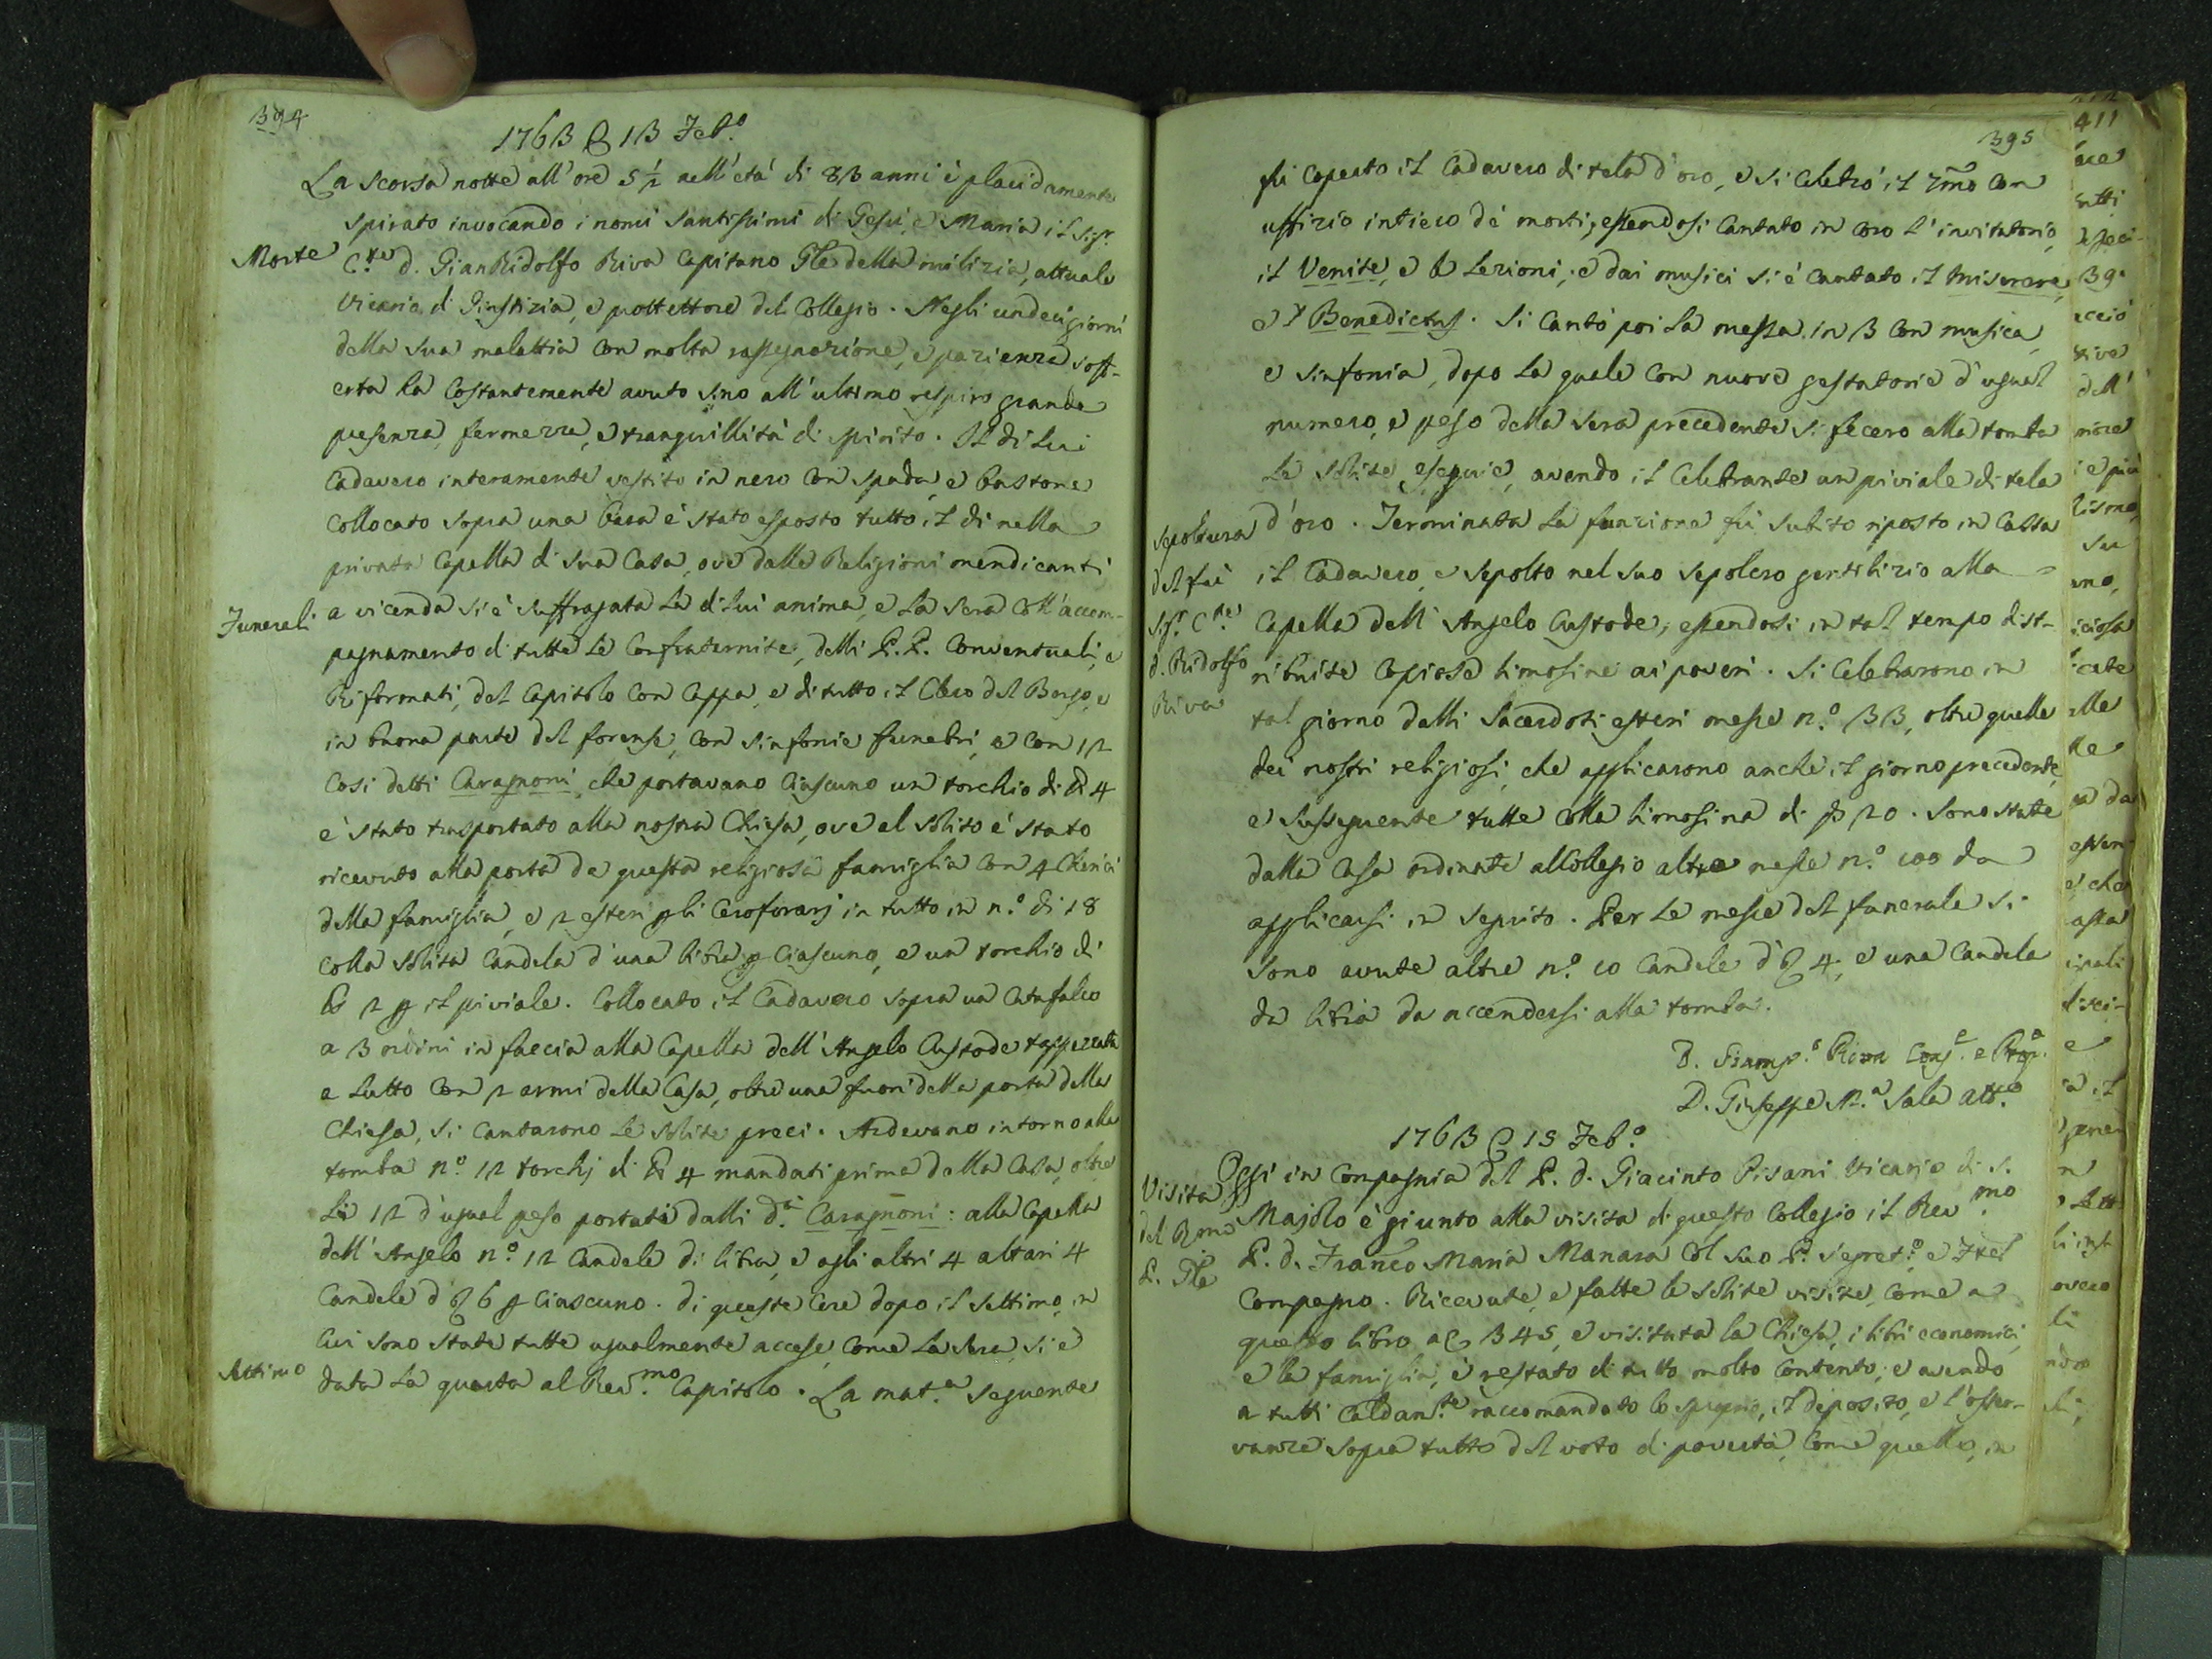 394
1763 13 Feb.o
La scorsa notte all'ore 5 1/2 nell'età di 83 anni è placidamente
spirato invocando i nomi santissimi di Gesù, e Maria il Sig.r
Morte
C.te d. Gian Ridolfo Riva Capitano Gle della milizia, attuale
Vicario di Giustizia, e prottettore del Collegio. Negli undeci giorni
della sua malattia con molta rassegnazione, e pazienza soff-
erta ha costantemente avuto sino all'ultimo respiro grande
presenza, fermezza, e tranquillità di spirito. Il di lui
Cadavero interamente vestito in nero con spada, e bastone
collocato sopra una bara è stato esposto tutto il di nella
privata Capella di sua Casa, ove dalle Religioni mendicanti
Funerali
a vicenda si è suffragata la di lui anima, e la sera coll'accom-
pagnamento di tutte le Confraternite, delli P.P. Conventuali, e
Riformati, del Capitolo con Cappa, e di tutto il Clero del Borgo, e
in buona parte del forense, con sinfonie funebri, e con 12
Cosi detti Caragnoni, che portavano ciascuno un torchio di lb 4
e' stato trasportato alla nostra Chiesa, ove al solito è stato
ricevuto alla porta da questa religiosa famiglia con 4 Chierici
della famiglia, e 2 esteri p li Ceroforarj in tutto in n.o di 18
colla solita Candela d'una libra p ciascuno, e un torchio di
lb 2 p il piviale. Collocato il Cadavero sopra un Catafalco
a 3 ordini in faccia alla Capella dell'Angelo Custode tappezzata
a lutto con 12 armi della Casa, oltre una fuori della porta della
Chiesa, si cantarono le solite preci. Ardevano intorno alla
tomba n.o 12 torchj di lb 4 mandati prima dalla Casa, oltre
li 12 d'ugual peso portati dalli d.i Caragnoni: alla Capella
dell'Angelo n.o 12 Candele di libra, e agli altri 4 altari 4
Candele d' 6 p ciascuno. Di queste Cere dopo il settimo, in
cui sono state tutte ugualmente accese, come la sera, si è
Settimo
data la quarta al Rev.mo Capitolo. La mat.a seguente
395
fù coperto il Cadavero di tela d'oro, e si celebrò il 7mo con
uffizio intiero de' morti, essendosi cantato in coro l'invitatorio,
il Venite, e le Lezioni, e dai musici si è cantato il Miserere,
e 'l Benedictus. Si cantò poi la messa in 3 con musica,
e sinfonia, dopo la quale con nuove gestatorie d'ugual
numero, e peso della sera precedente si fecero alla tomba
le solite esequie, avendo il Celebrante un piviale di tela
Sepoltura
del fù
Sig.r C.te
d. Ridolfo
Riva
d'oro. Terminata la funzione fù subito riposto in Cassa
il Cadavero, e sepolto nel suo sepolcro gentilizio alla
Capella dell'Angelo Custode, essendosi in tal tempo dist-
ribuite copiose limosine ai poveri. Si celebrarono in
tal giorno dalli Sacerdoti esteri messe n.o 33, oltre quelle
dei nostri religiosi, che applicarono anche il giorno precedente,
e susseguente tutte colla limosina di 20. Sono state
dalla Casa ordinate al Collegio altre messe n.o 100 da
applicarsi in seguito. Per le messe del funerale si
sono avute altre n.o 10 Candele d' 4, e una Candela
da libra da accendersi alla tomba.
D. Giamp.o Riva
D. Giuseppe M.a Sala Att.o
1763 15 Feb.o
Visita
del Rmo
P. Gle
Oggi in compagnia del P. d. Giacinto Pisani Vicario di S.
Majolo è giunto alla visita di questo Collegio il Rev.mo
P. d. Franco Maria Manara col suo P. Segret.o e Frel
Compagno. Ricevute, e fatte le solite visite, come a
questo libro a 345, e visitata la Chiesa, i libri economici,
e la famiglia, è restato di tutto molto contento, e avendo
a tutti caldam.te raccomandato lo il deposito, e l'osser-
vanza sopra tutto del voto di povertà, come quello, in
411